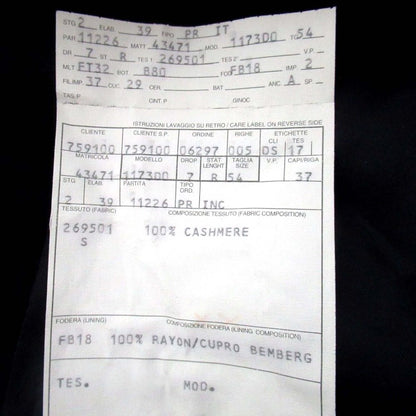 STG. 2 ELAB. 39 TIPO PR IT
PAR 11226 MATT. 43471 MOD. 117300 TG 54
DR 7 ST R TES 1 269501 TES 2 V.P.
MLT FT32 BOT B80 FOD FB18 IMP. 2
FIL.IMP. 37 CUC. 29 CER. BAT ANC. A SP.
TAS.P CINT. P GINOC.
ISTRUZIONI LAVAGGIO SU RETRO / CARE LABEL ON REVERSE SIDE
CLIENTE CLIENTE S.P. ORDINE RIGHE ETICHETTE
CLI TES
759100 759100 06297 005 DS 17
MATRICOLA MODELLO DROP STAT LENGHT TAGLIA SIZE V.P. CAPI/RIGA
43471 117300 7 R 54 37
STG ELAB. PARTITA TIPO ORD.
2 39 11226 PR INC
TESSUTO (FABRIC) COMPOSIZIONE TESSUTO (FABRIC COMPOSITION)
269501 100% CASHMERE
S
FODERA (LINING) COMPOSIZIONE FODERA (LINING COMPOSITION)
FB18 100% RAYON/CUPRO BEMBERG
TES. MOD.